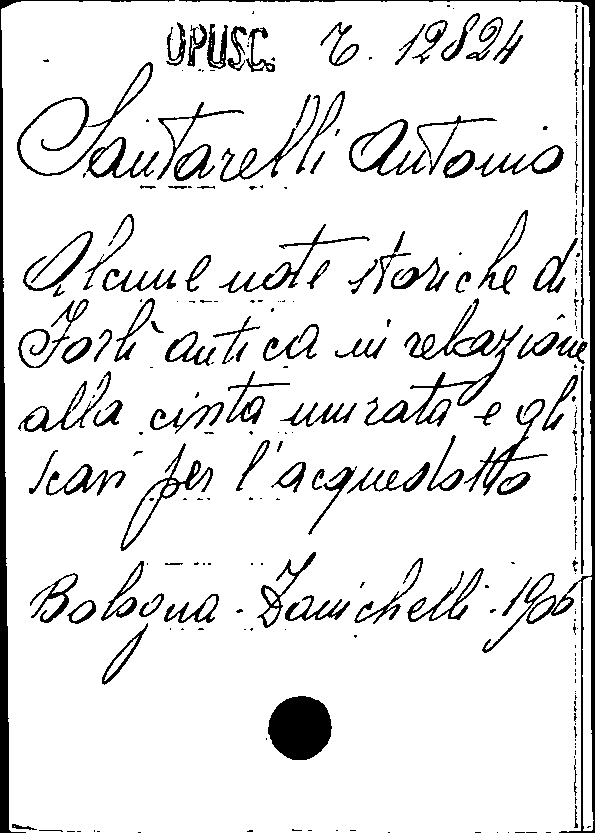 OPUSC. C. 12824
Santarelli Antonio
Alcune note storiche di
Forlì antica in relazione
alla cinta murata e gli
scavi per l'acquedotto
Bologna - Zanichelli - 1906